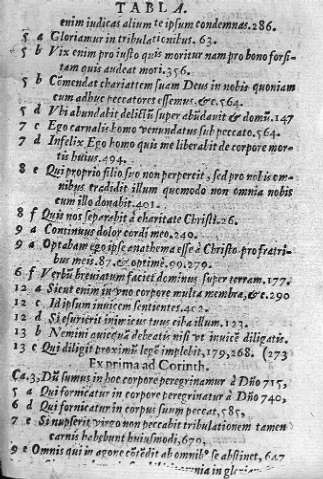 TABLA.
enim iudicas alium te ipsum condemnas.286.
5 a Gloriamur in tribulationibus. 63.
5 b Vix enim pro iusto quis moritur nam pro bono forsi-
tam quis audeat mori.356.
5 b Cōmendat chariattem suam Deus in nobis quoniam
cum adhuc peccatores essemus.&c.564.
5 d Vbi abundabit delictū super abūdauit & domū.147
7 c Ego carnalis homo venundatus sub peccato.564.
7 d Infelix Ego homo quis me liberabit de corpore mor-
tis huius.494.
8 e Qui proprio filio suo non perpercit, sed pro nobis om-
nibus tradidit illum quomodo non omnia nobis
cum illo donabit.401.
8 f Quis nos separabit à charitate Christi.26.
9 a Continuus dolor cordi meo.240.
9 a Optabam ego ipse anathema esse à Christo pro fratri-
bus meis.87.& optimè.99.279.
6 f Verbū breuiatum faciet dominus super terram.177.
12 a Sicut enim in vno corpore multa membra,&c.290
12 c Id ipsum inuicem sentientes.402.
12 d Si esurierit inimicus tuus ciba illum.123.
13 b Nemini quicquā debeatis nisi vt inuicē diligatis.
13 c Qui diligit proximū legē implebit,179,268. (273
Ex prima ad Corinth.
Ca.3, Dū sumus in hoc corpore peregrinamur à Dño 715,
5 a Qui fornicatur in corpore peregrinatur à Dño 740,
6 d Qui fornicatur in corpus suum peccat,585,
7 e Si nupserit virgo non peccabit tribulationem tamen
carnis habebunt huiusmodi,670,
9 e Omnis qui in agone cōtēdit ab omnibº se abstinet, 647
in gloriam